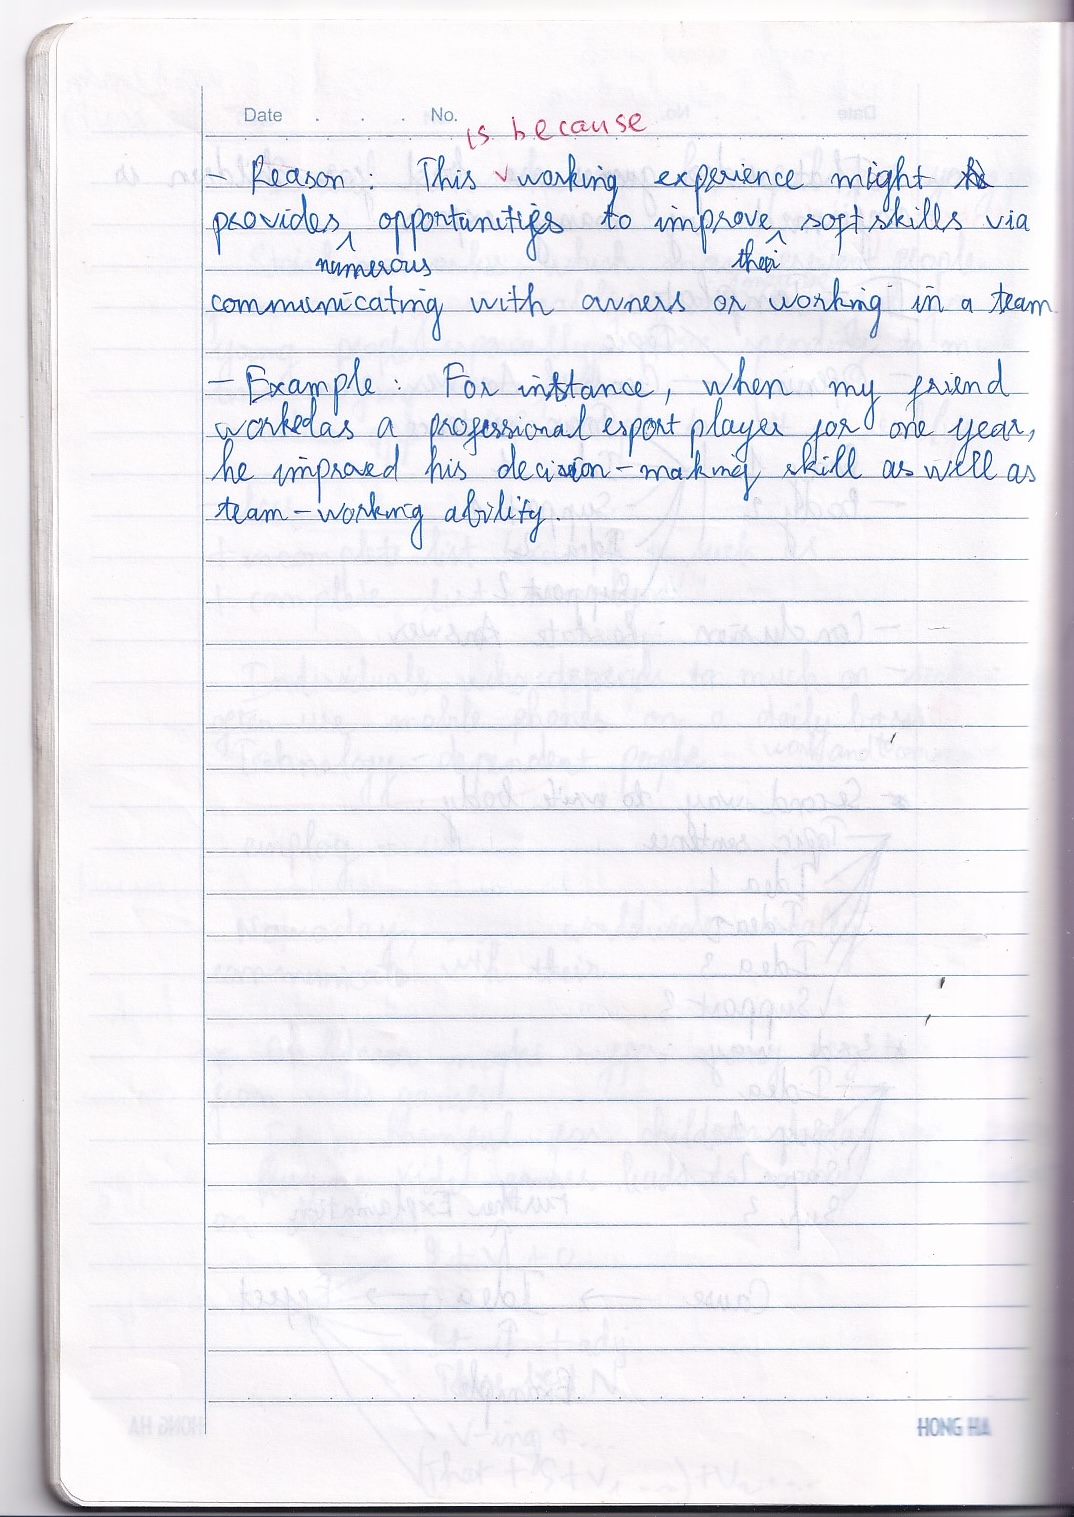 Date . . . No.
is because
- Reason : This working experience might
provides opportunities to improve soft skills via
numerous their
communicating with owners or working in a team
- Example : For instance, when my friend
worked as a professional esport player for one year,
he improved his decision-making skill as well as
team-working ability.
HONG HA